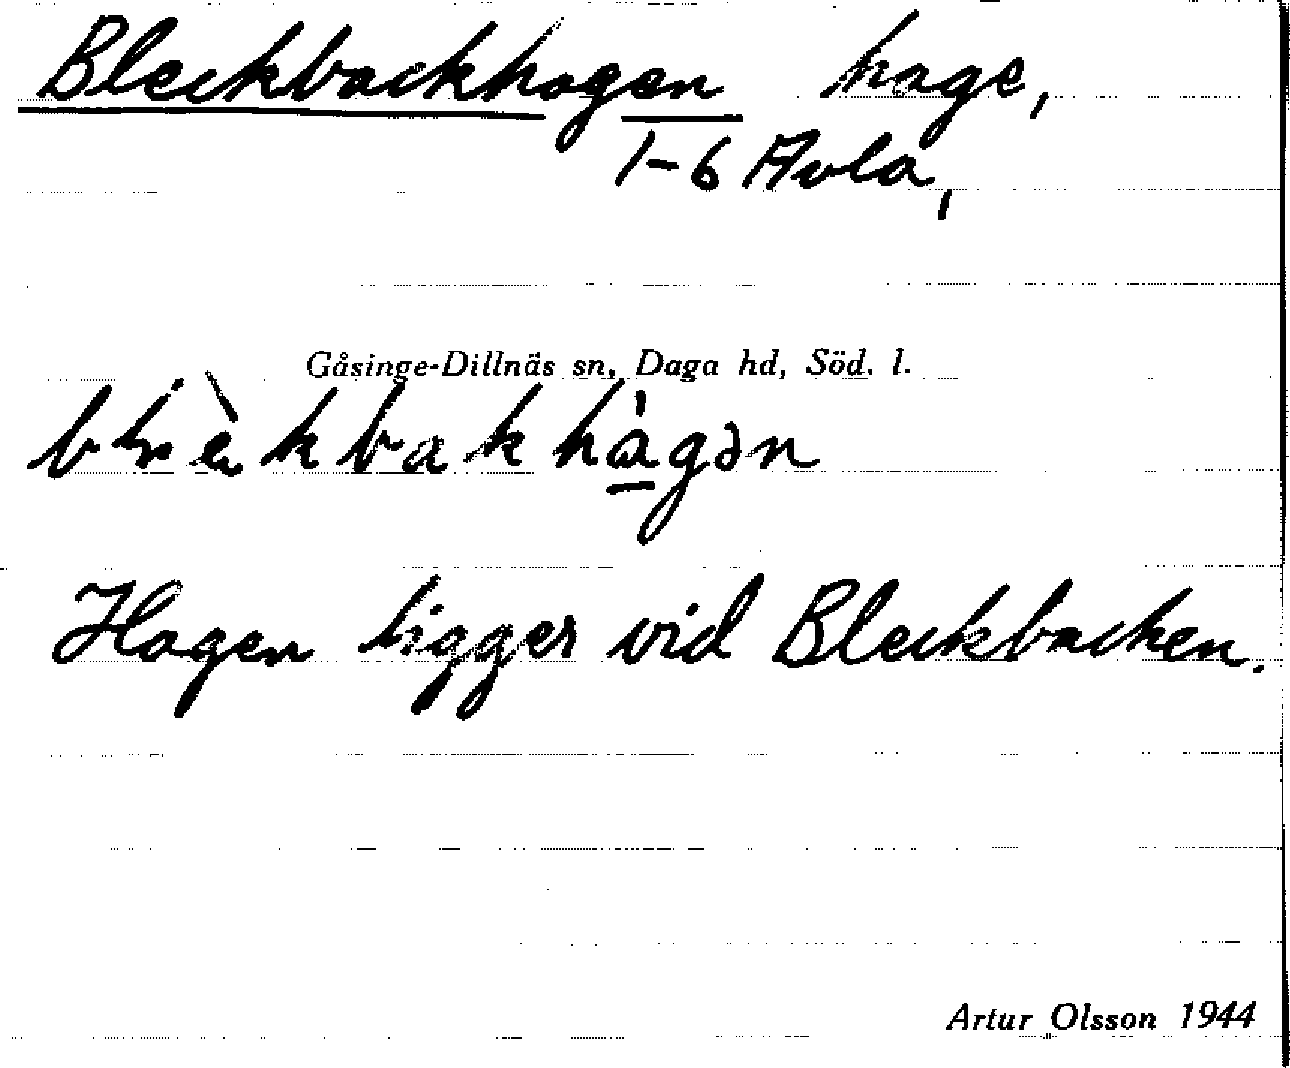 Bleckbackhagen hage,
1-6 Avla,
Gåsinge-Dillnäs sn, Daga hd, Söd. l.
Hagen ligger vid Bleckbacken.
Artur Olsson 1944